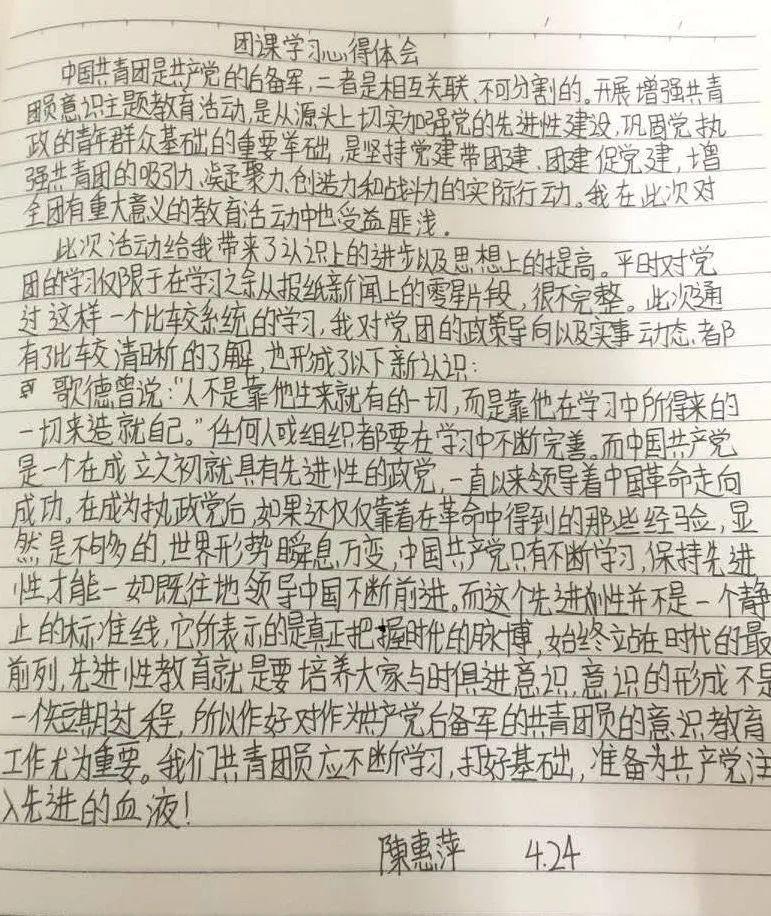 团课学习心得体会
中国共青团是共产党的后备军,二者是相互关联、不可分割的。开展增强共青
团员意识主题教育活动,是从源头上切实加强党的先进性建设,巩固党执
政的青年群众基础的重要举础,是坚持党建带团建、团建促党建,增
强共青团的吸引力、凝聚力、创造力和战斗力的实际行动。我在此次对
全团有重大意义的教育活动中也受益匪浅。
此次活动给我带来了认识上的进步以及思想上的提高。平时对党
团的学习仅限于在学习之余从报纸新闻上的零星片段,很不完整。此次通
过这样一个比较系统的学习,我对党团的政策导向以及实事动态、都
有了比较清晰的了解,也形成了以下新认识:
歌德曾说:“人不是靠他生来就有的一切,而是靠他在学习中所得来的
一切来造就自己。”任何人或组织都要在学习中不断完善。而中国共产党
是一个在成立之初就具有先进性的政党,一直以来领导着中国革命走向
成功。在成为执政党后,如果还仅仅靠着在革命中得到的那些经验,显
然是不够的,世界形势瞬息万变,中国共产党只有不断学习,保持先进
性才能一如既往地领导中国不断前进。而这个先进性并不是一个静
止的标准线,它所表示的是真正把握时代的脉博,始终站在时代的最
前列,先进性教育就是要培养大家与时俱进意识,意识的形成不是
一个短期过程,所以作好对作为共产党后备军的共青团员的意识教育
工作尤为重要。我们共青团员应不断学习,打好基础,准备为共产党注
入先进的血液!
陳惠萍 4.24